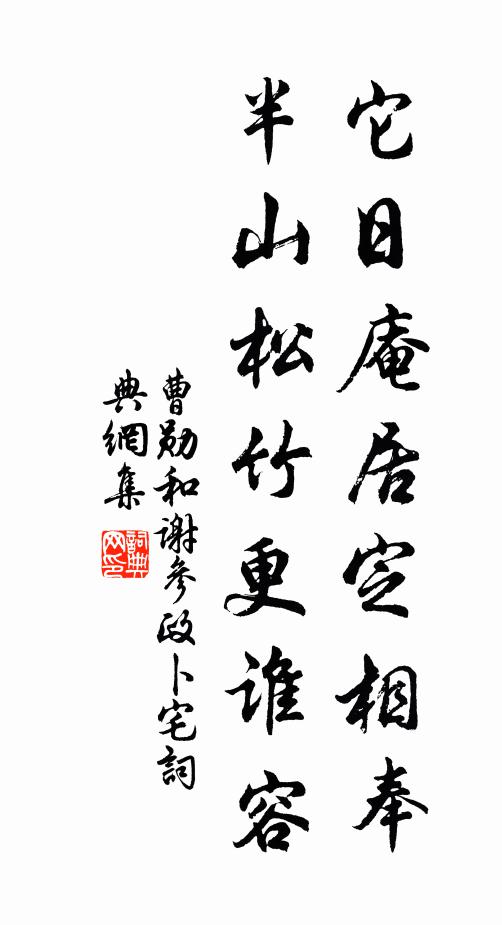 它日庵居定相奉
半山松竹更谁容
曹勋和谢参政卜宅詞
典網集
詞典网印